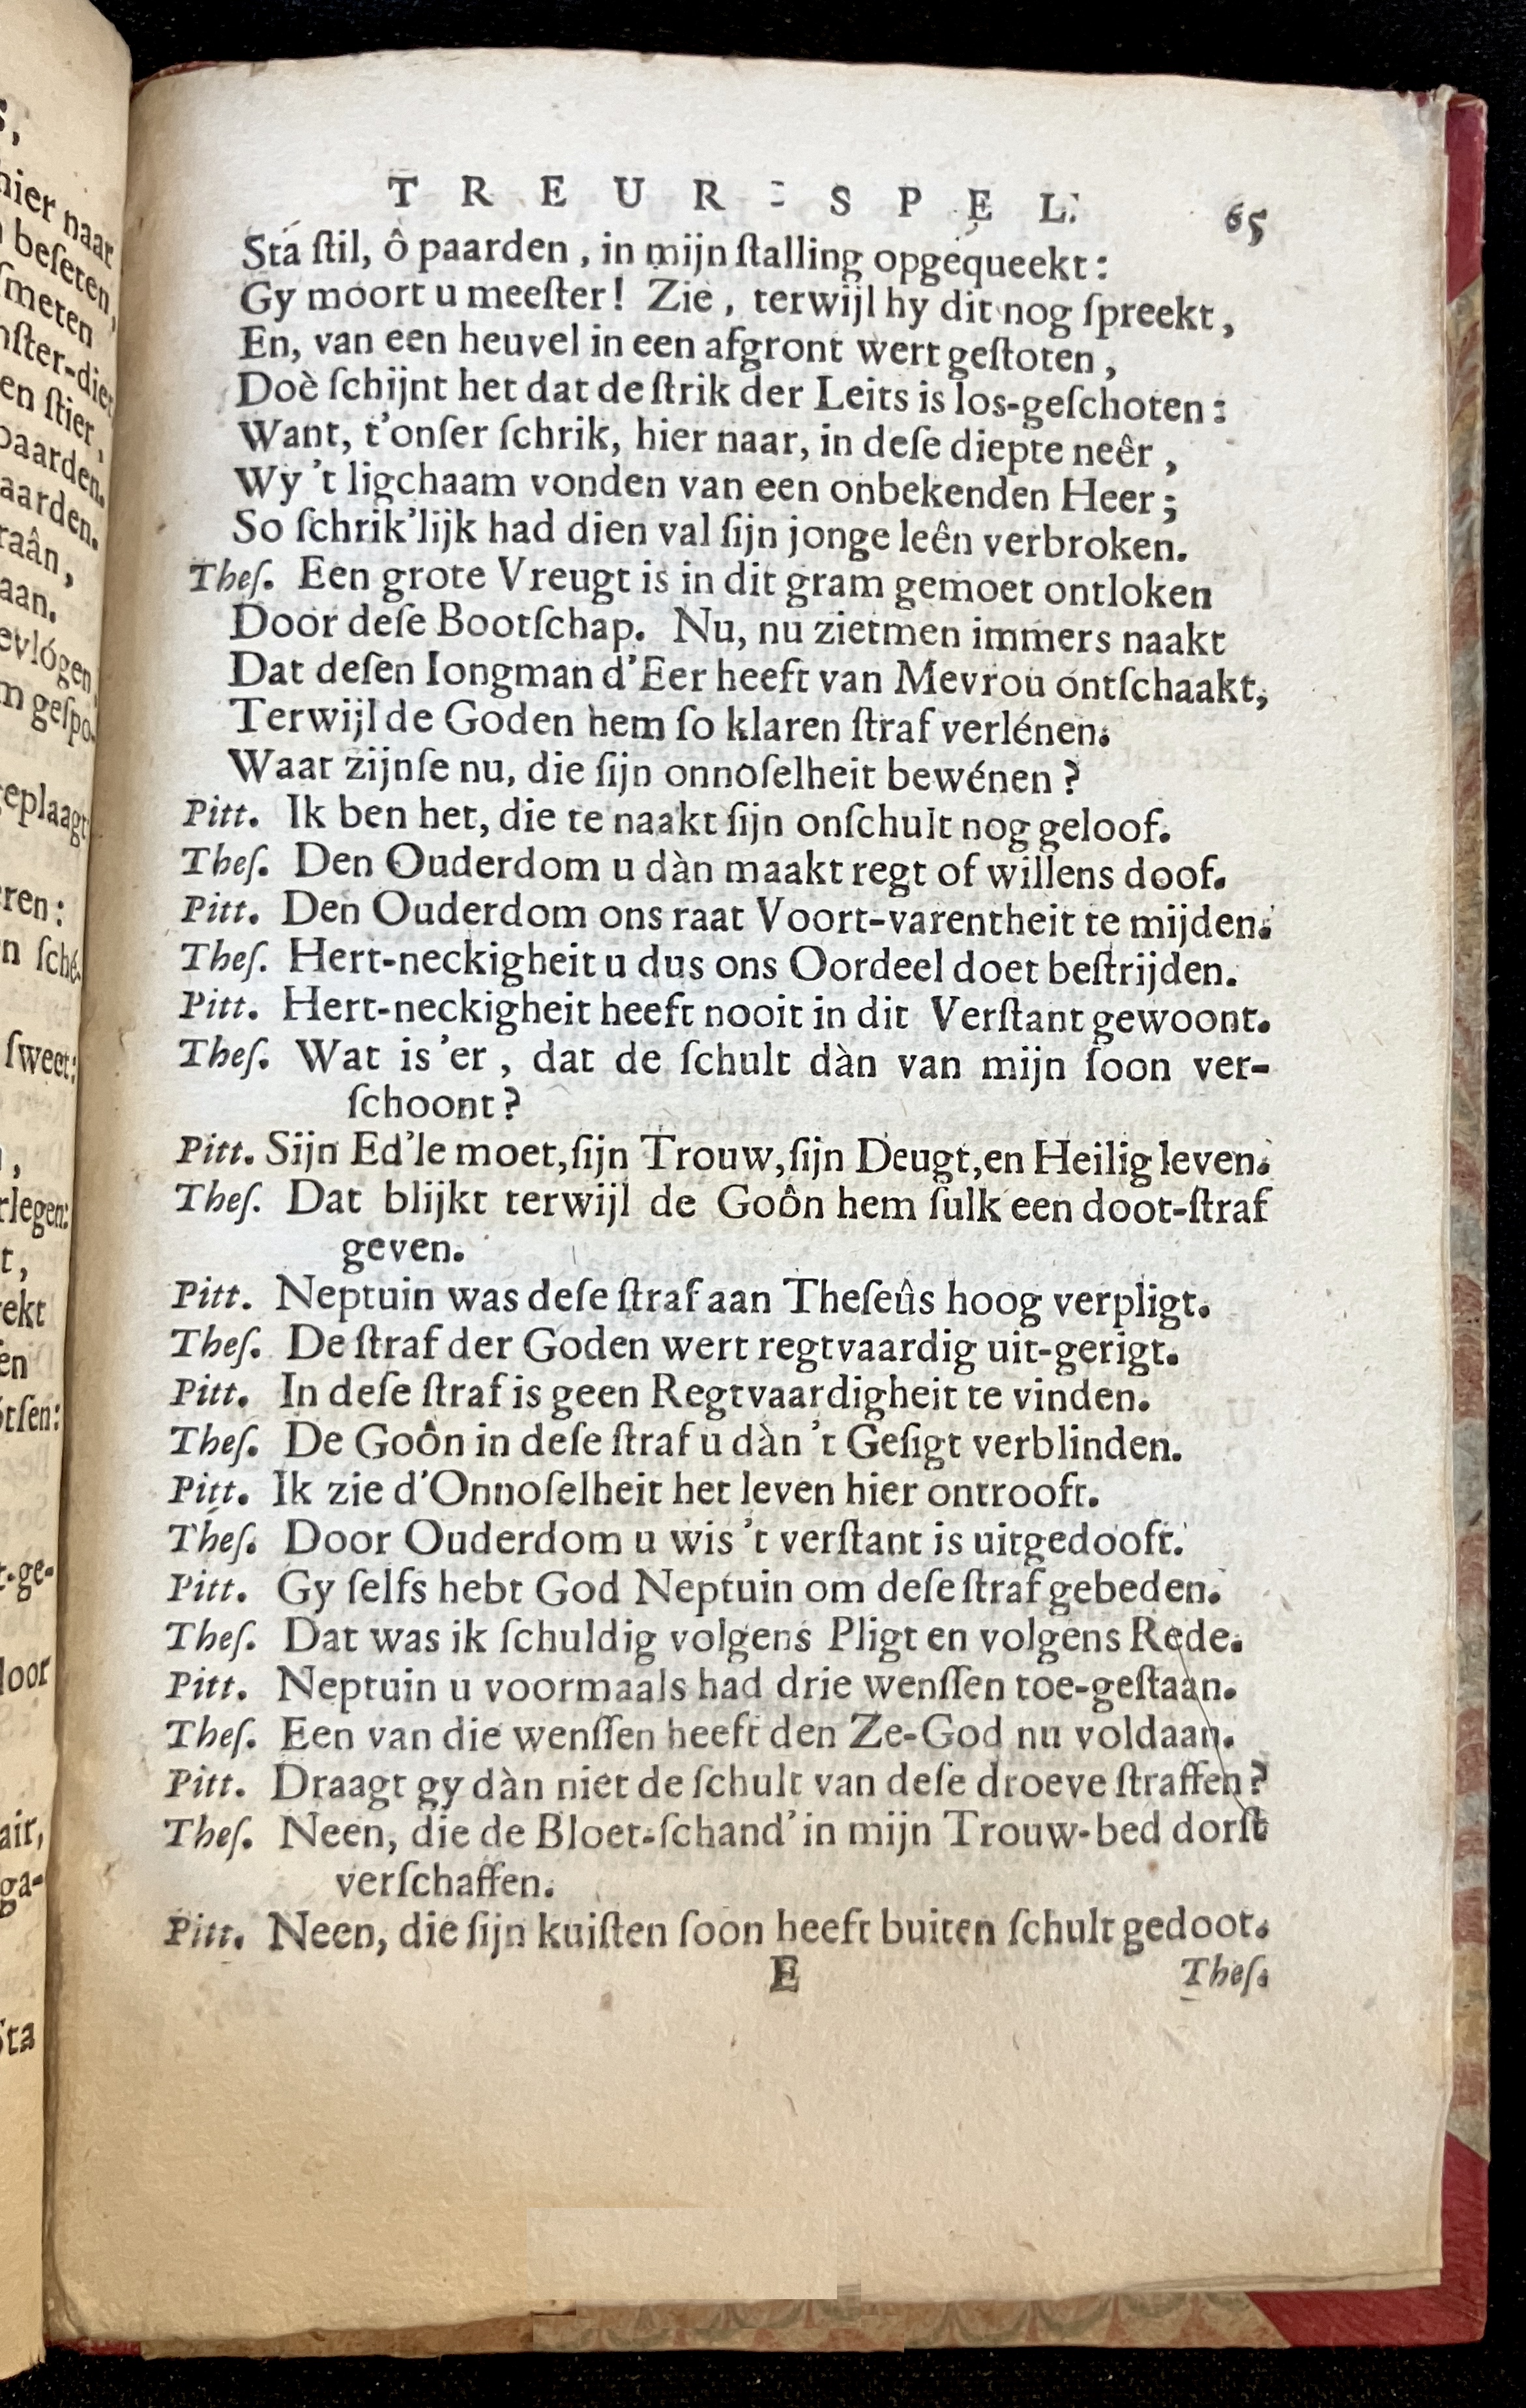 TREUR-SPEL. 65
Sta ſtil, ô paarden, in mijn ſtalling opgequeekt:
Gy moort u meeſter! Zie, terwijl hy dit nog ſpreekt,
En, van een heuvel in een afgront wert geſtoten,
Doè ſchijnt het dat de ſtrik der Leits is los-geſchoten:
Want, t'onſer ſchrik, hier naar, in deſe diepte neêr,
Wy 't ligchaam vonden van een onbekenden Heer;
So ſchrik'lijk had dien val ſijn jonge leên verbroken.
Theſ. Een grote Vreugt is in dit gram gemoet ontloken
Door deſe Bootſchap. Nu, nu zietmen immers naakt
Dat deſen Iongman d'Eer heeft van Mevrou ontſchaakt,
Terwijl de Goden hem ſo klaren ſtraf verlénen.
Waar zijnſe nu, die ſijn onnoſelheit bewénen?
Pitt. Ik ben het, die te naakt ſijn onſchult nog geloof.
Theſ. Den Ouderdom u dàn maakt regt of willens doof.
Pitt. Den Ouderdom ons raat Voort-varentheit te mijden.
Theſ. Hert-neckigheit u dus ons Oordeel doet beſtrijden.
Pitt. Hert-neckigheit heeft nooit in dit Verſtant gewoont.
Theſ. Wat is 'er, dat de ſchult dàn van mijn ſoon ver-
ſchoont?
Pitt. Sijn Ed'le moet, ſijn Trouw, ſijn Deugt, en Heilig leven.
Theſ. Dat blijkt terwijl de Goôn hem ſulk een doot-ſtraf
geven.
Pitt. Neptuin was deſe ſtraf aan Theſeûs hoog verpligt.
Theſ. De ſtraf der Goden wert regtvaardig uit-gerigt.
Pitt. In deſe ſtraf is geen Regtvaardigheit te vinden.
Theſ. De Goôn in deſe ſtraf u dàn 't Geſigt verblinden.
Pitt. Ik zie d'Onnoſelheit het leven hier ontrooft.
Theſ. Door Ouderdom u wis 't verſtant is uitgedooft.
Pitt. Gy ſelfs hebt God Neptuin om deſe ſtraf gebeden.
Theſ. Dat was ik ſchuldig volgens Pligt en volgens Rede.
Pitt. Neptuin u voormaals had drie wenſſen toe-geſtaan.
Theſ. Een van die wenſſen heeft den Ze-God nu voldaan.
Pitt. Draagt gy dàn niet de ſchult van deſe droeve ſtraffen?
Theſ. Neen, die de Bloet-ſchand' in mijn Trouw-bed dorſt
verſchaffen.
Pitt. Neen, die ſijn kuiſten ſoon heeft buiten ſchult gedoot.
E Theſ.